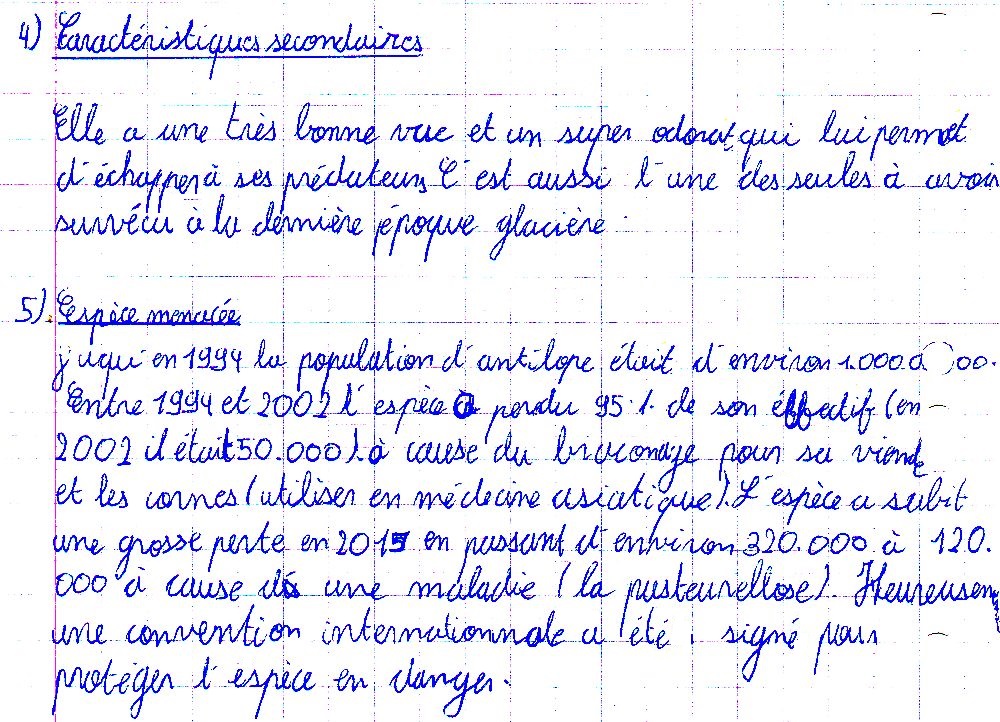 4) Caractéristiques secondaires
Elle a une très bonne vue et un super odorat, qui lui permet
d'échapper à ses prédateurs C'est aussi l'une des seules à avoir
survécu à la dernière époque glacière.
5). Espèce menacée
j'uqu'en 1994 la population d'antilope était d'environ 1.000.000.
Entre 1994 et 2002 l'espèce a perdu 95% de son éffectif (en
2002 il était 50.000). à cause du braconage pour sa viande
et les cornes (utiliser en médecine asiatique). L'espèce a subit
une grosse perte en 2015 en passant d'environ 320.000 à 120.
000 à cause dà une maladie (la pasteurellose). Heureusem
une convention internationnale a été signé pour
protéger l'espèce en danger.